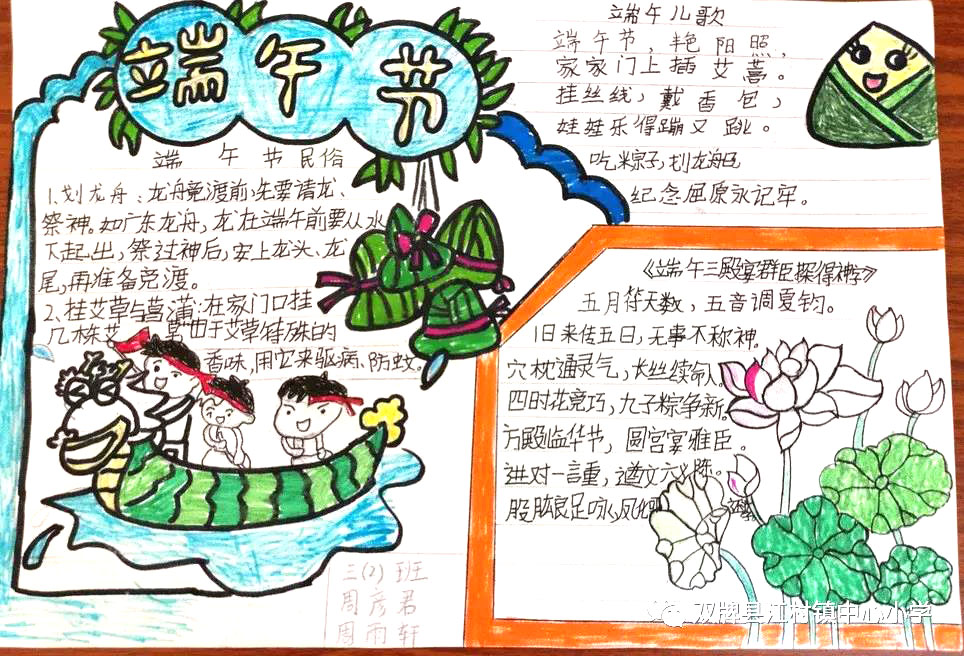 端午节
端午节民俗
1、划龙舟、龙舟竞渡前,先要请龙、
祭神。如广东龙舟,龙在端午前要从水
下起出,祭过神后,安上龙头、龙
尾,再准备竞渡。
2、挂艾草与菖蒲:在家门口挂
几株艾 草由于艾草特殊的
香味,用它来驱病、防蚊。
三(2)班
周彦君
周雨轩
端午儿歌
端午节,艳阳照,
家家门上插艾蒿。
挂丝线,戴香包,
娃娃乐得蹦又跳。
吃粽子,划龙船
纪念屈原永记牢。
《端午三殿宴群臣探得神字》
五月符天数,五音调夏钧。
旧来传五日,无事不称神。
穴枕通灵气,长丝续命人。
四时花竞巧,九子粽争新。
方殿临华节,圆宫宴雅臣。
进对一言重,遒文六义陈。
股肱良足咏,凤
双牌县江村镇中心小学